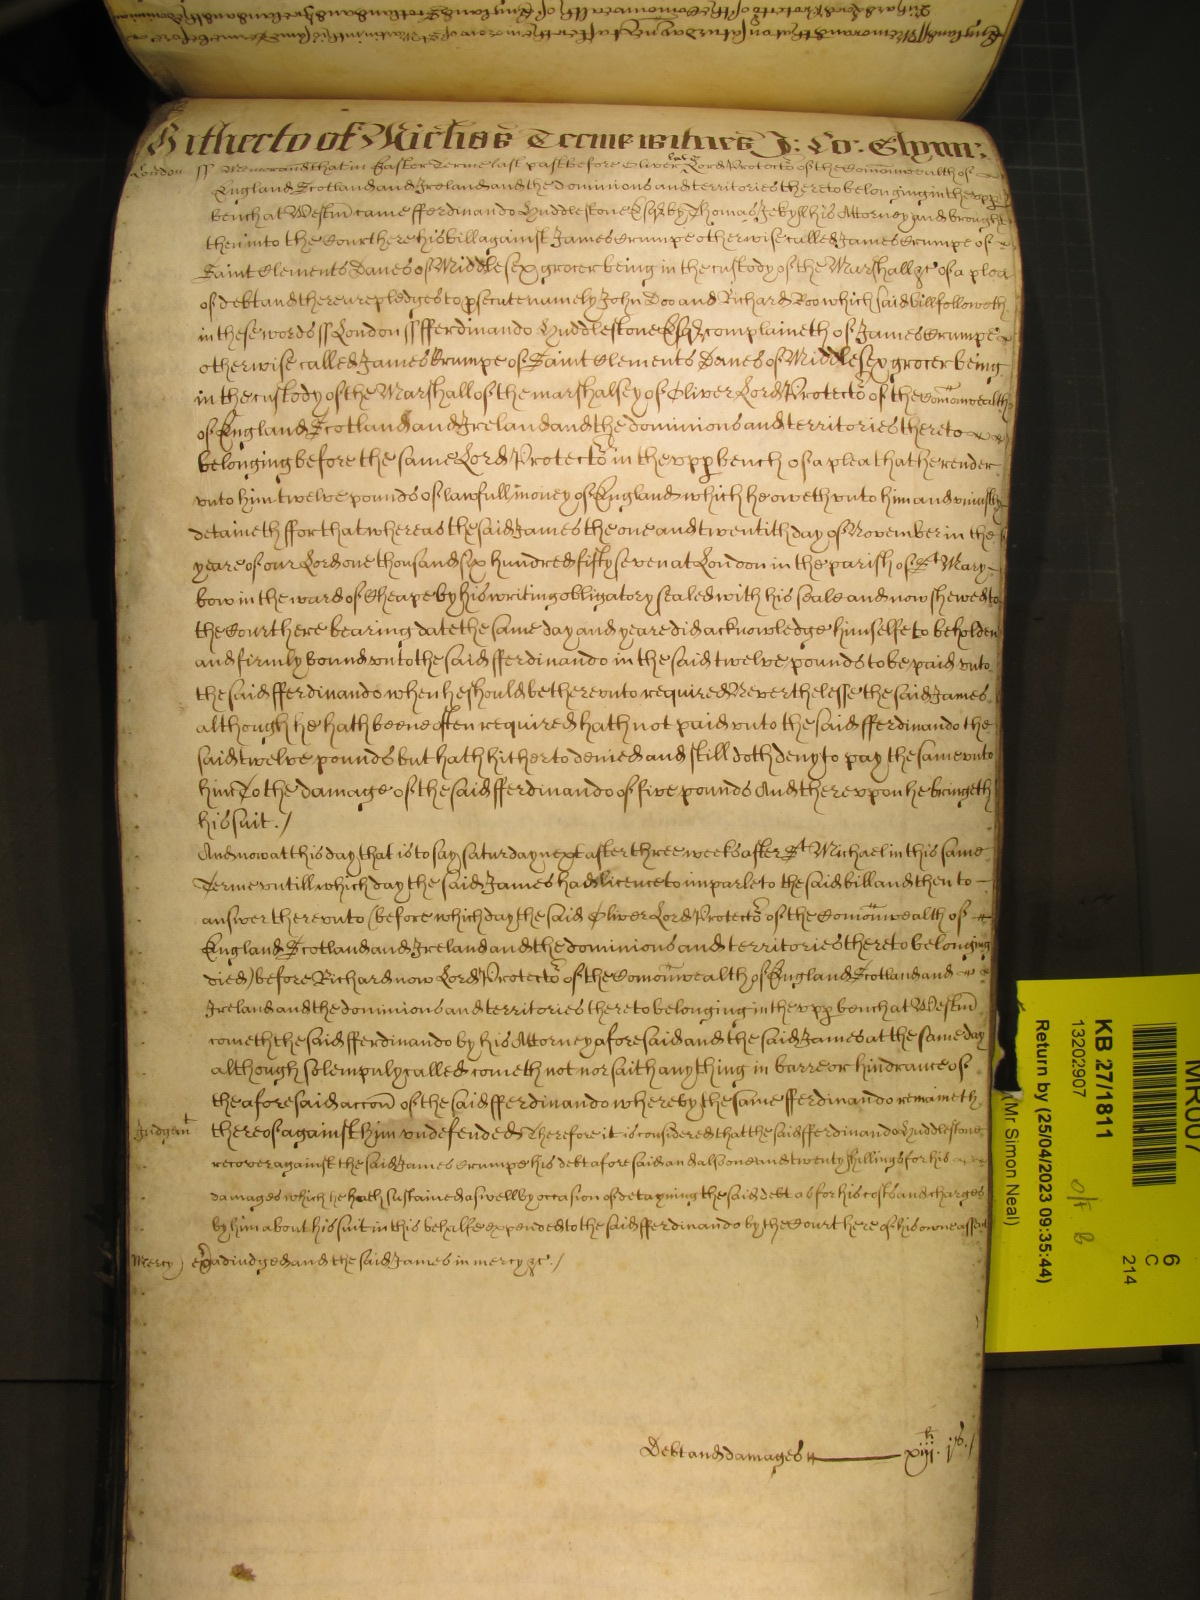 Hitherto of Michas Terme witnes J: Lo: Glynn:
London ss Memorand that in Easter Terme last past before Oliver late Lord Protector of the Comonwealth of
England Scotland and Ireland and the Dominions and territories thereto belonging in the vpp
bench at Westm came fferdinando Huddlestone Esqr by Thomas Jekyll his Attorney and brought
then into the Court here his bill against James Crumpe otherwise called James Crumpe of
Saint Clements Danes of Middlesex grocer being in the custody of the Marshall &c of a plea
of debt and there are pledges to psecute namely John Doo and Richard Roo which said bill followeth
in these words ss London ss fferdinando Huddlestone Esqr complaineth of James Crumpe
otherwise called James Crumpe of Saint Clements Danes of Middlesex grocer being
in the custody of the Marshall of the marshalsey of Oliver Lord Protector of the Comonwealth
of England Scotland and Ireland and the dominions and territories thereto
belonging before the same Lord Protector in the vpp bench of a plea that he render
vnto him twelve pounds of lawfull money of England which he oweth vnto him and vniustly
detaineth ffor that whereas the said James the one and twentith day of November in the
yeare of our Lord one thousand six hundred fifty seven at London in the parish of St Mary
bow in the ward of Cheape by his writing obligatory sealed with his seale and now shewed to
the Court here bearing date the same day and yeare did acknowledge himselfe to be holden
and firmly bound vnto the said fferdinando in the said twelve pounds to be paid vnto
the said fferdinando when he should be therevnto required Neverthelesse the said James
although he hath beene often required hath not paid vnto the said fferdinando the
said twelve pounds but hath hitherto denied and still doth deny to pay the same vnto
him To the damage of the said fferdinando of five pounds And therevpon he bringeth
his suit./
And now at this day that is to say saturday next after three weeks after St Michael in this same
Terme vntill which day the said James had licence to imparle to the said bill and then to
answer therevnto (before which day the said Oliver Lord Protector of the Comonwealth of
England Scotland and Ireland and the dominions and territories thereto belonging
died) before Richard now Lord Protector of the Comonwealth of England Scotland and
Ireland and the dominions and territories thereto belonging in the vpp bench at Westm
cometh the said fferdinando by his Attorney aforesaid and the said James at the same day
although solempnly called cometh not nor saith any thing in barre or hindrance of
the aforesaid accon of the said fferdinando whereby the same fferdinando remaineth
Judgemt thereof against him vndefended Therefore it is considered that the said fferdinando Huddlestone
recover against the said James Crumpe his debt aforesaid and also one and twenty shyllings for his
damages which he hath sustained aswell by occasion of detayning the said debt as for his costs and charges
by him about his suit in this behalfe expended to the said fferdinando by the Court here of his owne assent
Mercy) adiudged and the said James in mercy &c./
Debt and damages xiijli. js./
MR007
KB 27/1811
13202907
Return by (25/04/2023 09:35:44)
(Mr Simon Neal)
6
C
214